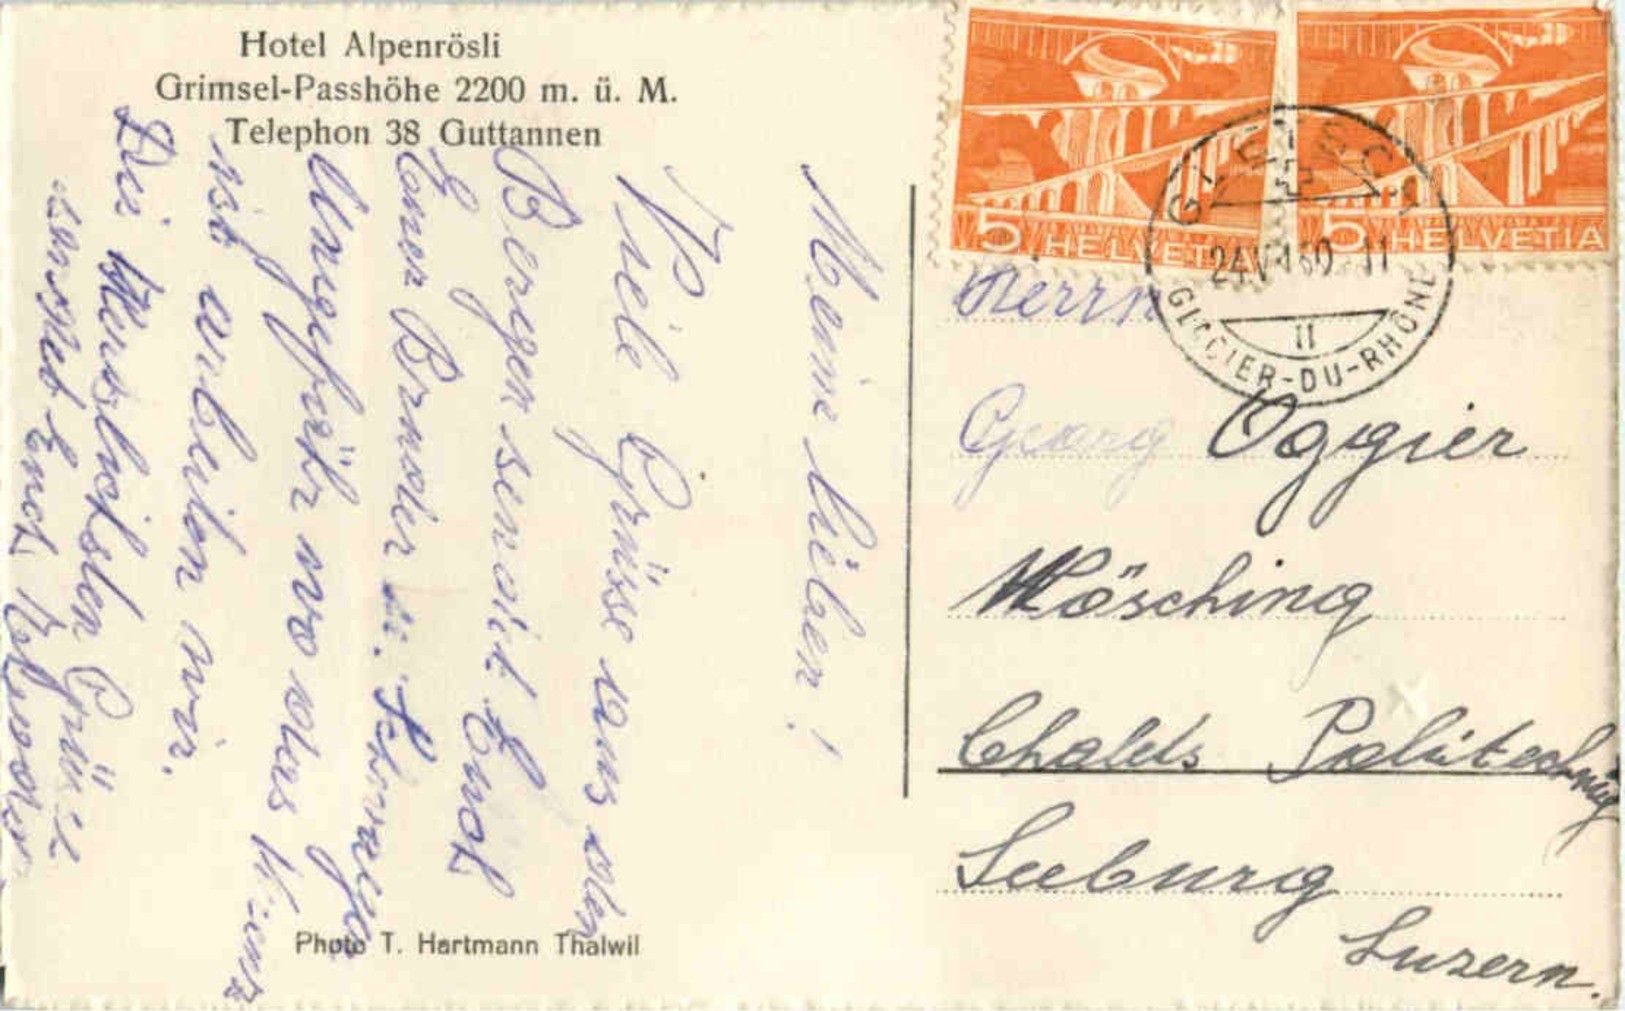 Hotel Alpenrösli
Grimsel-Passhöhe 2200 m. ü. M.
Telephon 38 Guttannen
Meine lieben!
Viele Grüsse aus den
Bergen sendet Euch
Euer Bruder u.
Ungefähr wo das
ist arbeiten wir.
Die herzlichsten Grüsse
sendet Euch
Photo T. Hartmann Thalwil
5 HELVETIA
5 HELVETIA
GLETSCH
24.VII.50 11
II
GLACIER-DU-RHÔNE
Herrn
Georg Oggier
Mösching
Chalets
Seeburg
Luzern.